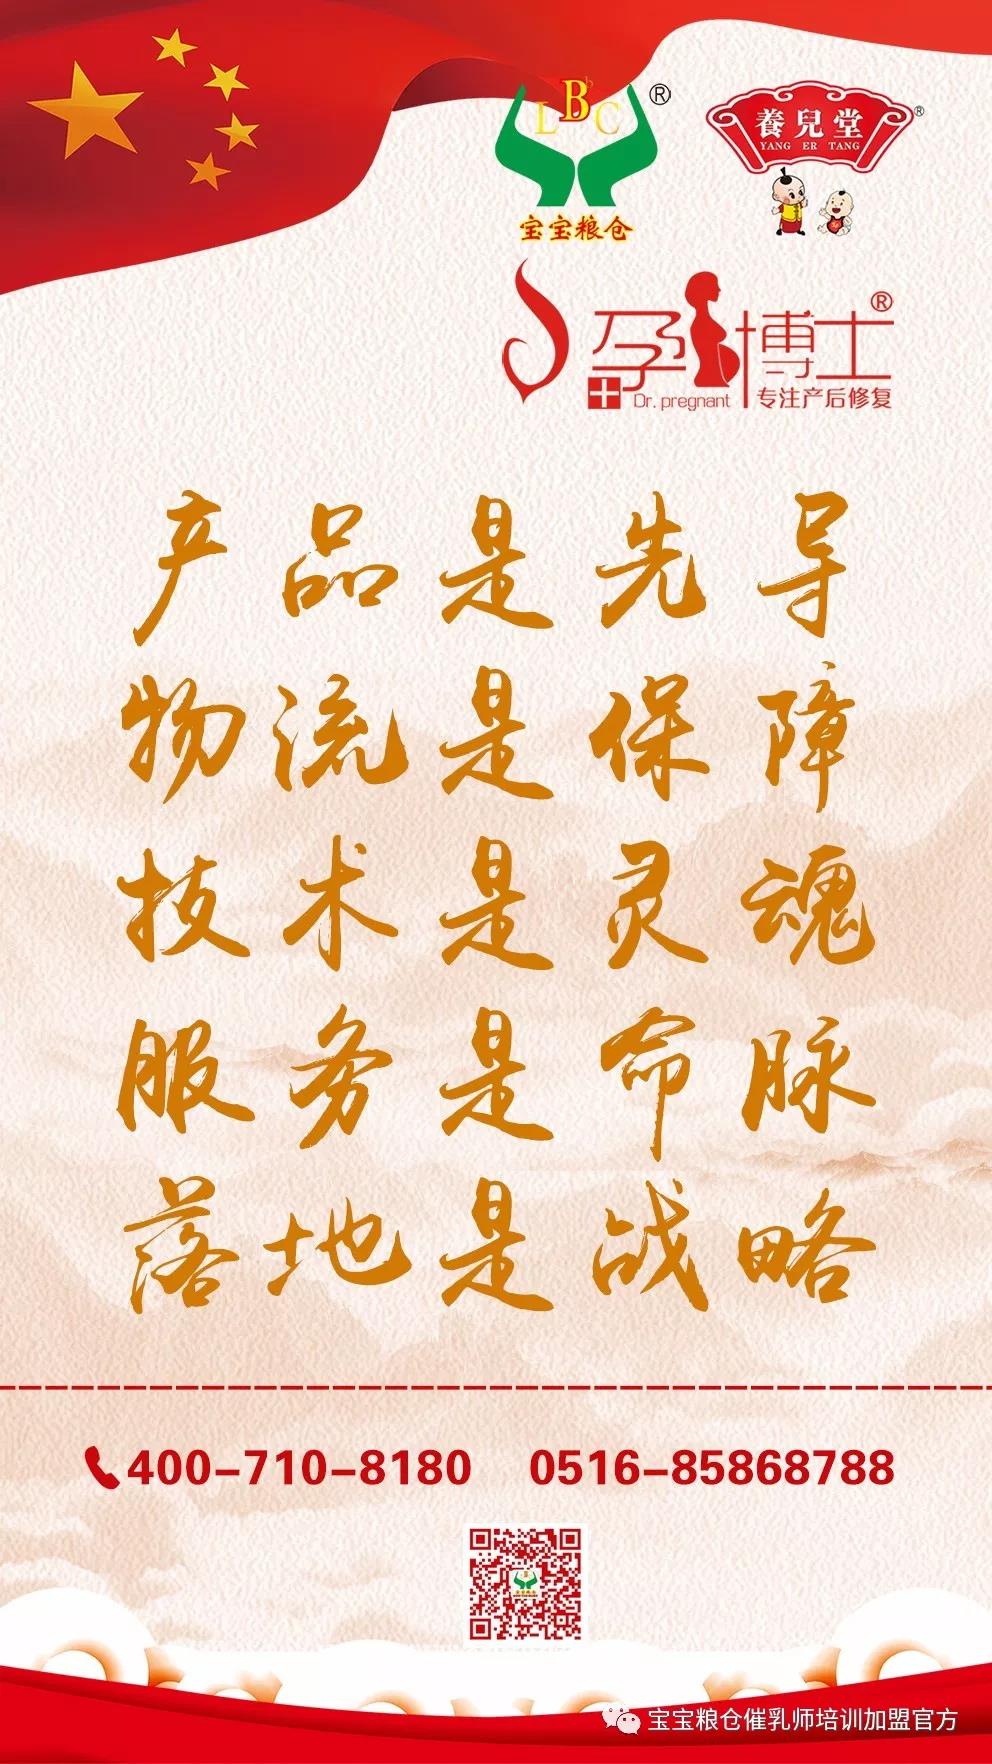 LBC®
宝宝粮仓
養兒堂®
YANG ER TANG
孕博士®
Dr. pregnant 专注产后修复
产品是先导
物流是保障
技术是灵魂
服务是命脉
落地是战略
400-710-8180 0516-85868788
宝宝粮仓催乳师培训加盟官方